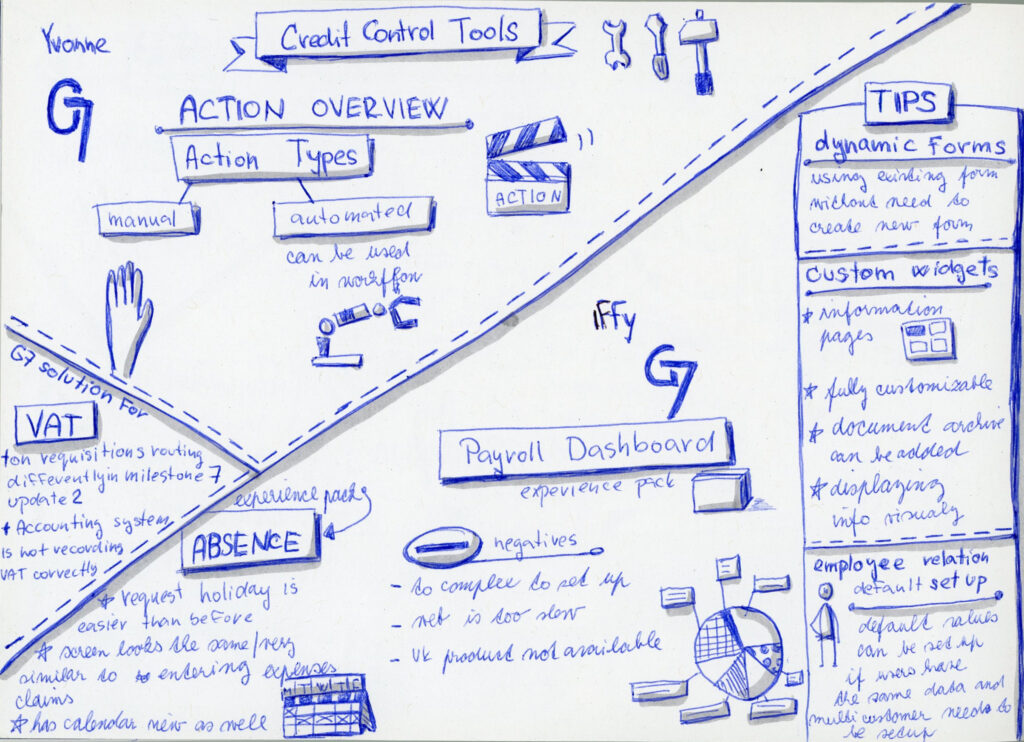 Yvonne
G7
Credit Control Tools
ACTION OVERVIEW
Action Types
manual
automated
can be used
in workflow
ACTION
G7 solution For
VAT
on requisitions routing
differently in milestone 7
update 2
Accounting system
is not recording
VAT correctly
experience pack
ABSENCE
request holiday is
easier than beFore
screen looks the same/very
similar to entering expenses
claims
has calendar view as well
M T W T F
iFFy
G7
Payroll Dashboard
experience pack
negatives
- to complex to set up
- net is too slow
- UK product not available
TIPS
dynamic Forms
using existing form
without need to
create new form
custom widgets
information
pages
fully customizable
document archive
can be added
displaying
info visualy
employee relation
default set up
default values
can be set up
if users have
the same data and
multi customer needs to
be setup